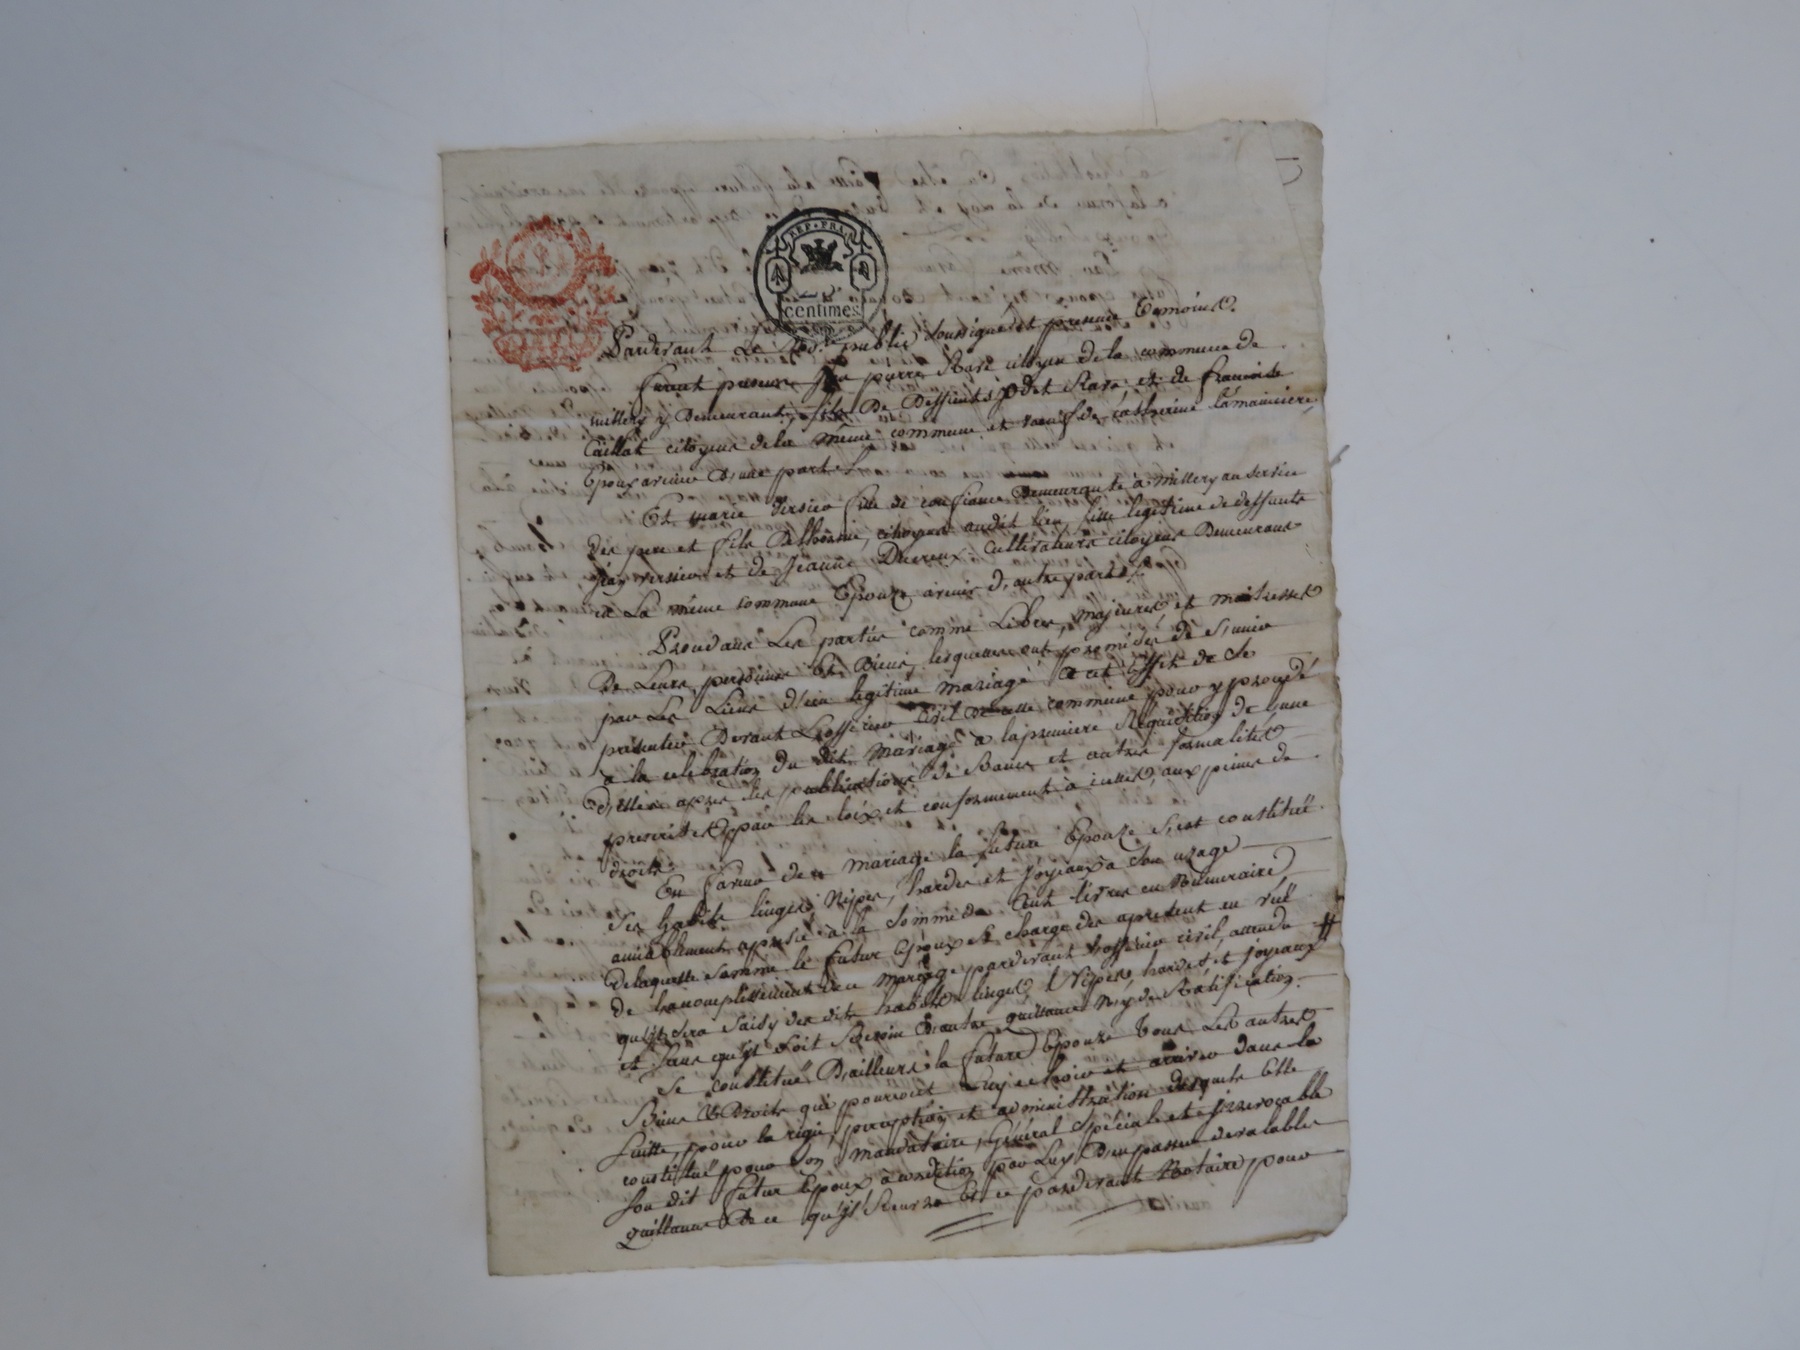 REP. FRA.
centimes
Pardevant Le No.re public soussigné et presence temoins.
furent presens pierre Stare citoyen de la commune de
millery y Demeurant, fils De Deffunts Stare et de francoise
Caillat citoyens de la même commune et veuf de catherine
Epoux avenir D'une part
Et marie Versier fille de confiance Demeurante à millery au service
des pere et fils citoyens audit lieu, fille legitime de deffunte
Jean versier et de Jeanne Ducreux cultivateurs citoyens Demeurans
en La même commune Epouze avenir d'autre part
Procedans Les parties comme Libres, majeures et maitresses
De Leurs personnes Et Biens, lesquelles ont promis de S'unir
par Les Liens d'un legitime mariage a cet Effet de Se
presenter Devant L'officier Civil de cette commune pour y procedé
a la celebration du dit mariage a la premiere Requisition de L'une
D'elles apres les publications de Bancs et autres formalités
prescrittes par les loix et conformement à icelles, aux peines de
droit
En faveur de ce mariage la future Epouze S'est constituée
Ses habits linges, Nippes, hardes et Joyeaux à Son uzage
amiablement apretié à la Somme de Cent livres en Numeraire
De laquelle Somme le futur Epoux Se charge des apresent en vuë
de L'accomplissement de ce mariage pardevant L'officier civil, attendu
qu'il sera Saisy des dits habits linges, Nippes, hardes et Joyeaux
et Sans qu'il Soit Besoin D'autre quittance Ny de Ratification.
Se constitue D'ailleurs la future Epouze Tous Les autres
Biens & Droits qui pourront Luy echoir et arriver dans la
Suitte, pour la regie, perception et administration desquels Elle
constitué pour Son mandataire, Général Spéciale et Jrrevocable
Son dit futur Epoux à condition par Luy D'en passer devalables
quittances De ce qu'il Recevra Et ce pardevant Notaire, pour